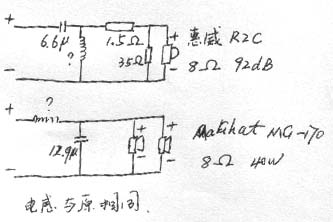 6.6μ
?
1.5Ω
35Ω
惠威 R2C
8Ω 92dB
?
12.9μ
8Ω 40W
电感与原相同.